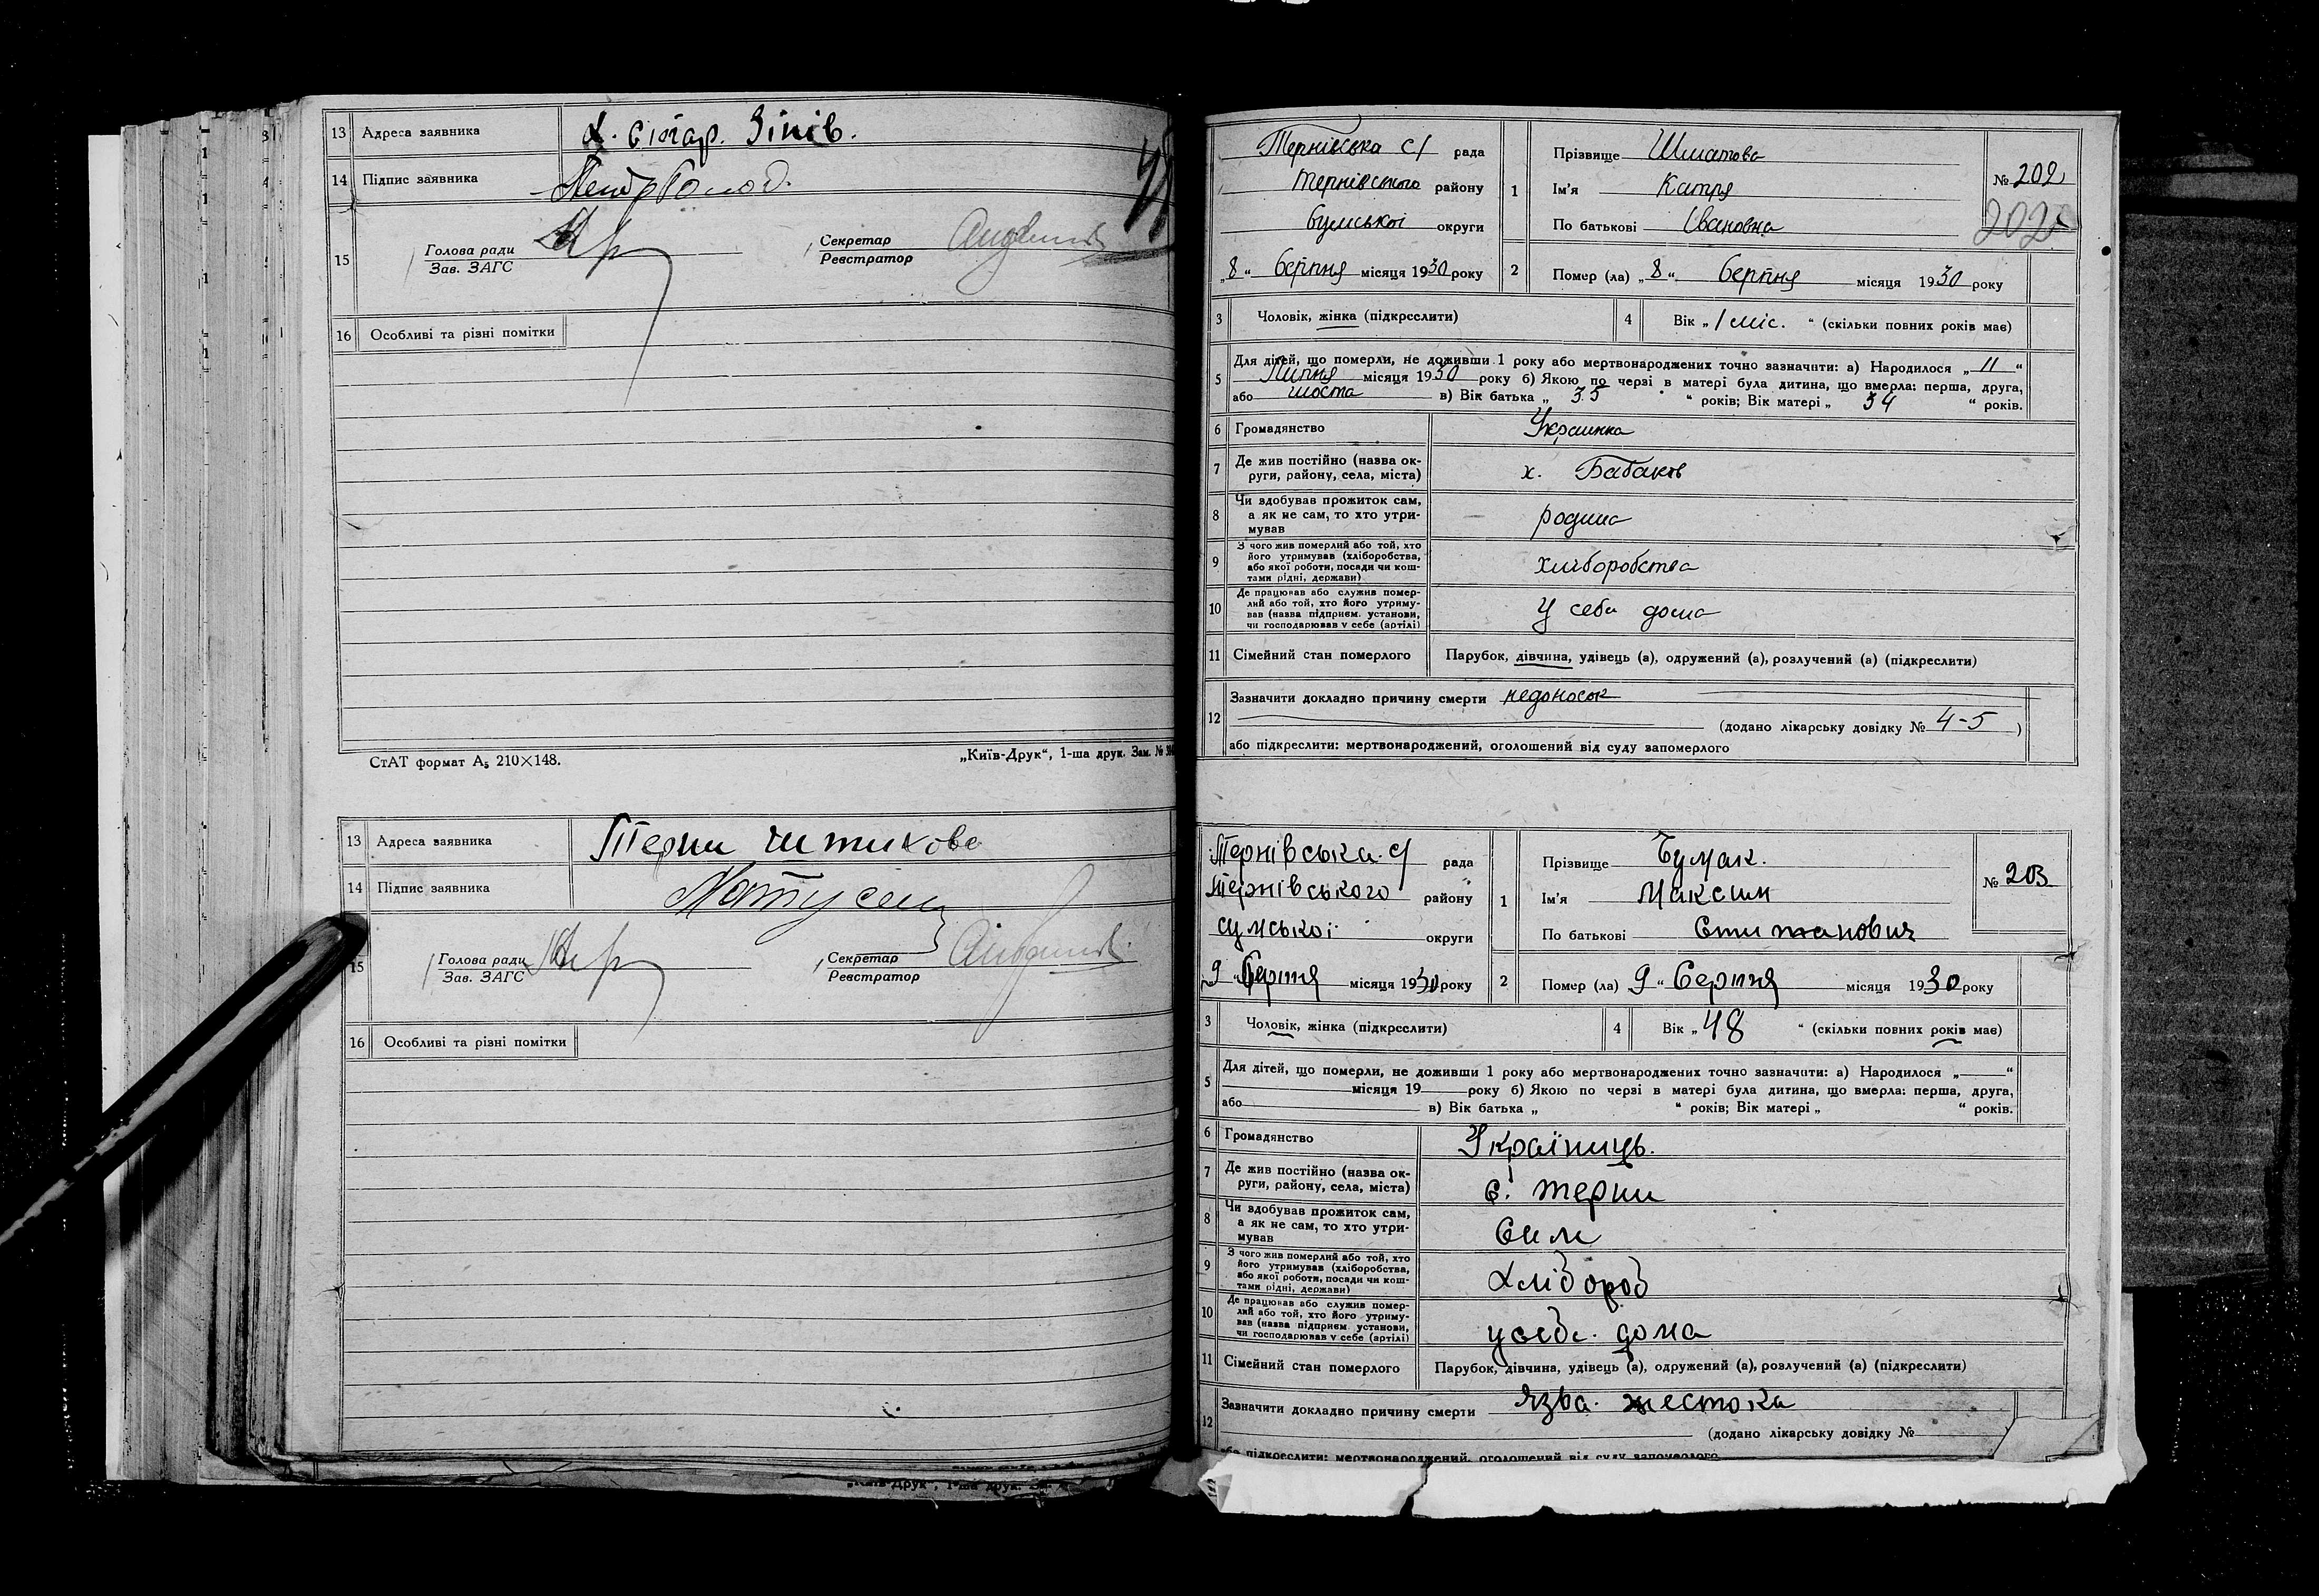 13 Адреса заявника х. сітар. Зінів.
14 Підпис заявника
15 Голова ради
Зав. ЗАГС
Секретар
Реєстратор
16 Особливі та різні помітки
СтАТ формат А₅ 210×148.
„Київ-Друк“, 1-ша друк. Зам. №
13 Адреса заявника Терни
14 Підпис заявника
15 Голова ради
Зав. ЗАГС
Секретар
Реєстратор
16 Особливі та різні помітки
Тернівська с/ рада
Тернівського району
Сумської округи
„8“ Серпня місяця 1930 року
1 Прізвище Шматова
Ім'я Катря
По батькові Івановна
№ 202
202
2 Помер (ла) „8“ Серпня місяця 1930 року
3 Чоловік, жінка (підкреслити)
4 Вік „1 міс.“ (скільки повних років має)
5 Для дітей, що померли, не доживши 1 року або мертвонароджених точно зазначити: а) Народилося „11“
Липня місяця 1930 року б) Якою по черзі в матері була дитина, що вмерла: перша, друга,
або шоста в) Вік батька „35“ років; Вік матері „34“ років.
6 Громадянство Украинка
7 Де жив постійно (назва ок-
руги, району, села, міста) х. Бабаков
8 Чи здобував прожиток сам,
а як не сам, то хто утри-
мував родина
9 З чого жив померлий або той, хто
його утримував (хліборобства,
або якої роботи, посади чи кош-
тами рідні, держави) хліборобства
10 Де працював або служив помер-
лий або той, хто його утриму-
вав (назва підприєм. установи,
чи господарював у себе (артілі) У себи дома
11 Сімейний стан померлого Парубок, дівчина, удівець (а), одружений (а), розлучений (а) (підкреслити)
12 Зазначити докладно причину смерти недоносок
(додано лікарську довідку № 4-5)
або підкреслити: мертвонароджений, оголошений від суду запомерлого
Тернівська с/ рада
Тернівського району
сумської округи
9 Серпня місяця 1930 року
1 Прізвище Чумак.
Ім'я Максим
По батькові
№ 203
2 Помер (ла) 9“ Серпня місяця 1930 року
3 Чоловік, жінка (підкреслити)
4 Вік „48“ (скільки повних років має)
5 Для дітей, що померли, не доживши 1 року або мертвонароджених точно зазначити: а) Народилося „ “
місяця 19 року б) Якою по черзі в матері була дитина, що вмерла: перша, друга,
або в) Вік батька „ “ років; Вік матері „ “ років.
6 Громадянство Україниць.
7 Де жив постійно (назва ок-
руги, району, села, міста) с. терни
8 Чи здобував прожиток сам,
а як не сам, то хто утри-
мував Сам
9 З чого жив померлий або той, хто
його утримував (хліборобства,
або якої роботи, посади чи кош-
тами рідні, держави) Хлібороб
10 Де працював або служив помер-
лий або той, хто його утриму-
вав (назва підприєм. установи,
чи господарював у себе (артілі) усебе. дома
11 Сімейний стан померлого Парубок, дівчина, удівець (а), одружений (а), розлучений (а) (підкреслити)
12 Зазначити докладно причину смерти Язва. жестока
(додано лікарську довідку №
або підкреслити: мертвонароджений, оголошений від суду запомерлого
„Київ-Друк“, 1-ша друк.